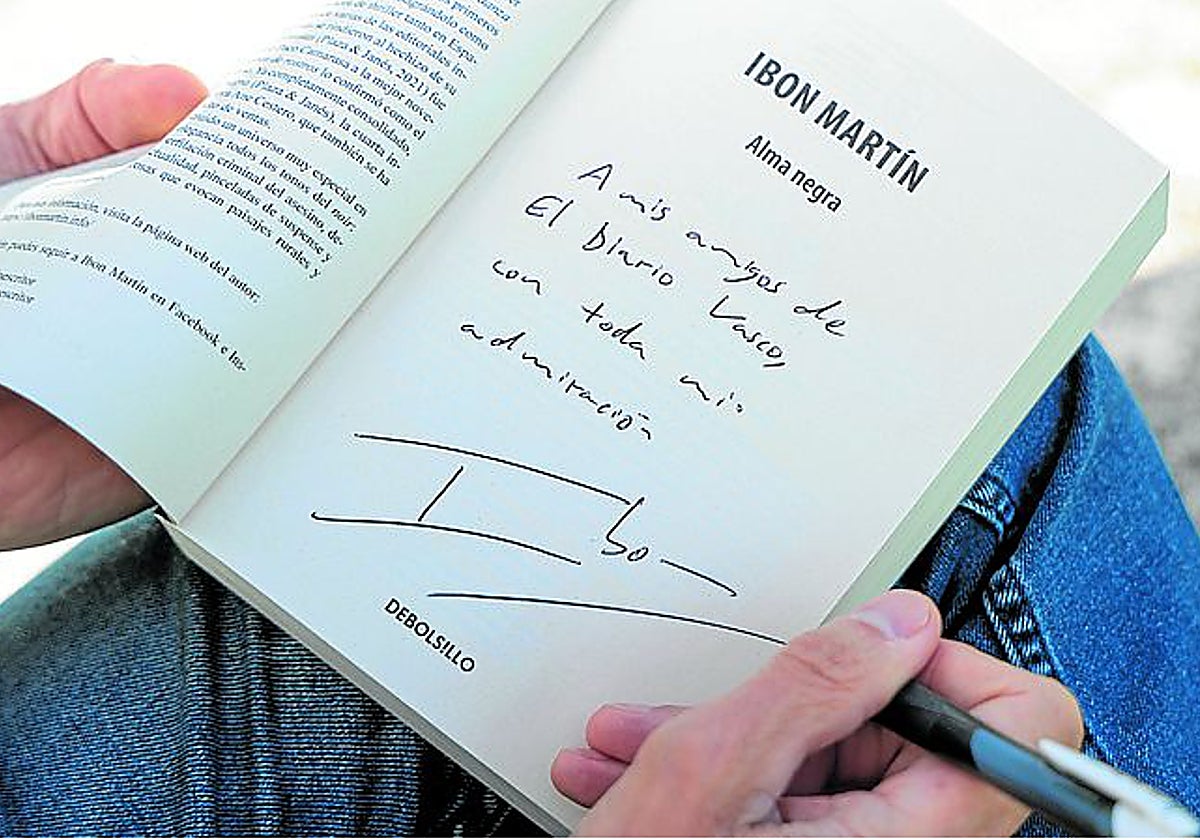 primeros
thriller tanto en Espa-
varias de las editoriales in-
rindieron al hechizo de su
(Plaza & Janés, 2021) fue
Paco Camarasa a la mejor nove-
lo confirmó como el
completamente consolidada,
(Plaza & Janés), la cuarta in-
Ane Cestero, que también se ha
de ventas.
un universo muy especial en
todos los tonos del noir:
perfilación criminal del asesino, de-
actualidad, pinceladas de suspense y
que evocan paisajes rurales y
información, visita la página web del autor:
ibonmartin.info
puedes seguir a Ibon Martín en Facebook e Ins-
escritor
escritor
IBON MARTÍN
Alma negra
A mis amigos de
El Diario Vasco,
con toda mi
admiración
Ibon
DEBOLSILLO